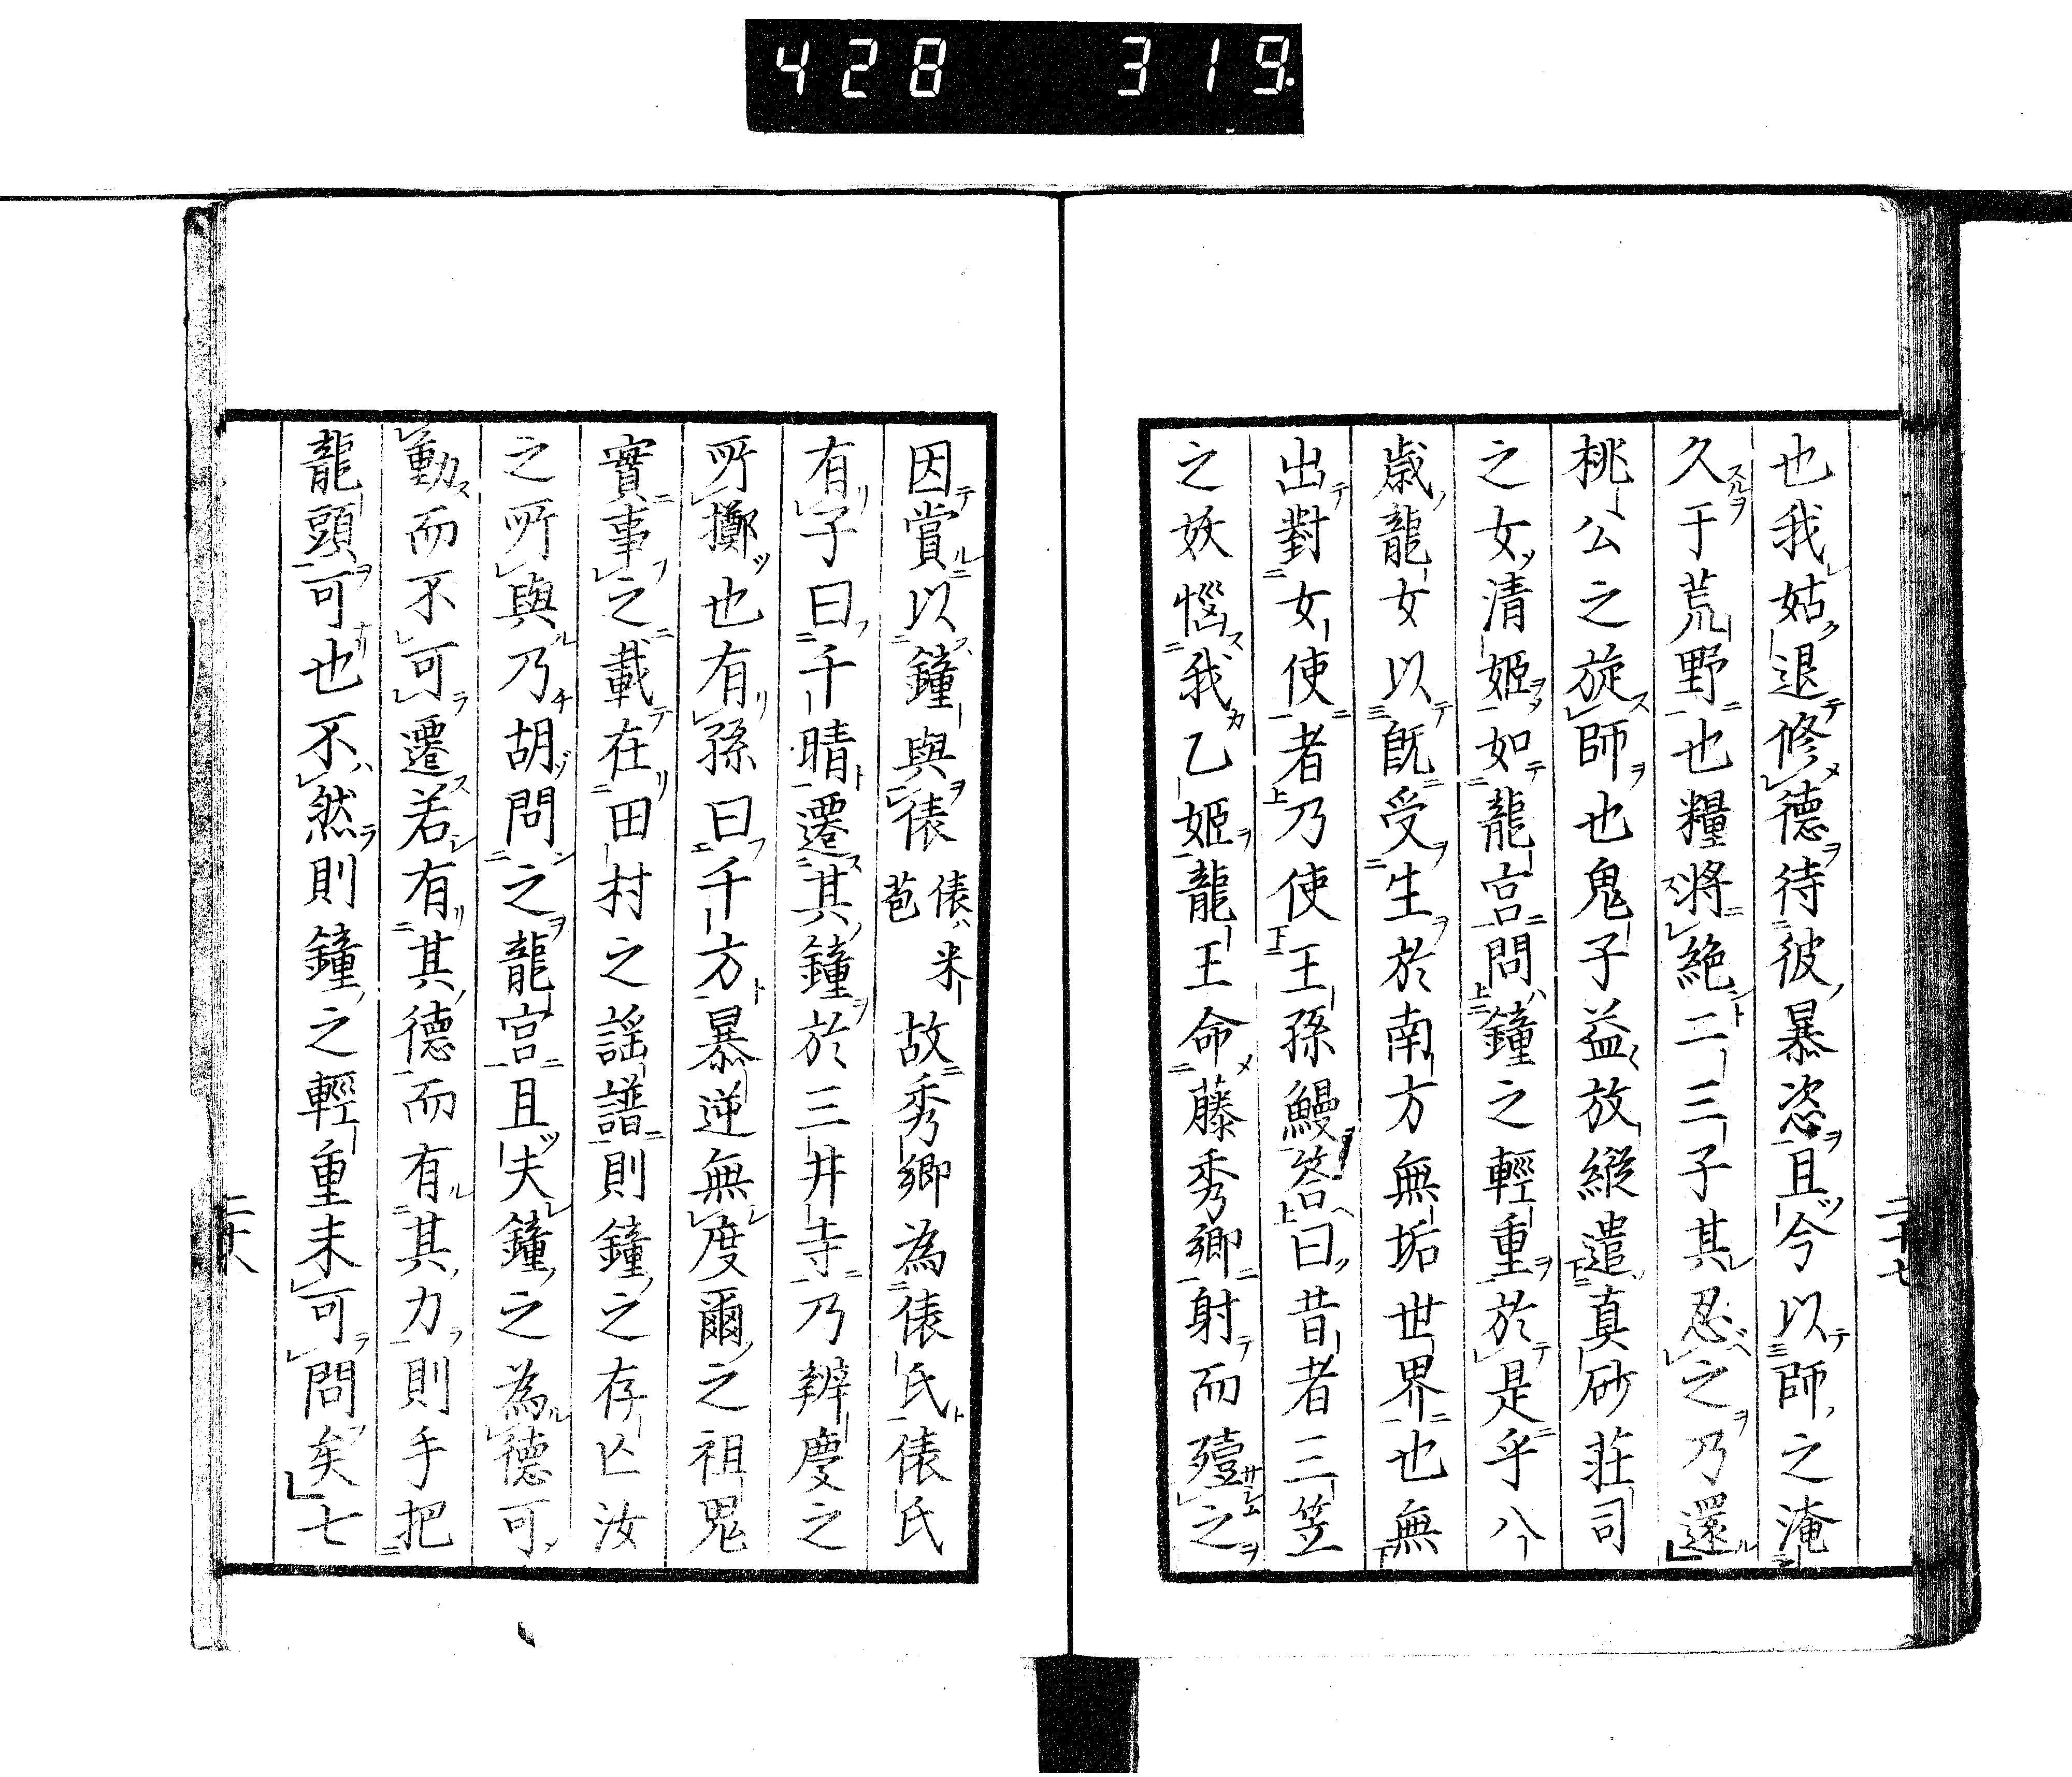 428 319
二十七
也我姑退修德待彼暴恣且今以師之淹
久于荒野也糧將絶二三子其忍之乃還
桃公之旋師也鬼子益放縱遣真砂荘司
之女清姬如龍宮問鐘之輕重於是乎八
歳龍女以既受生於南方無垢世界也無
出對女使者乃使王孫鰻答曰昔者三笠
之妖惱我乙姬龍王命藤秀鄉射而殪之
因賞以鐘與俵俵米苞故秀鄉為俵氏俵氏
有子曰千晴遷其鐘於三井寺乃辨慶之
所擲也有孫曰千方暴逆無度爾之祖鬼
實事之載在田村之謡譜則鐘之存亡汝
之所與乃胡問之龍宮且夫鐘之為德可
動而不可遷若有其德而有其力則手把
龍頭可也不然則鐘之輕重未可問矣七
二十八